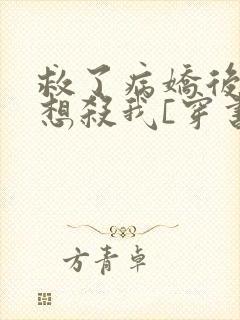 救了病嬌後
想殺我[穿書
方青卓